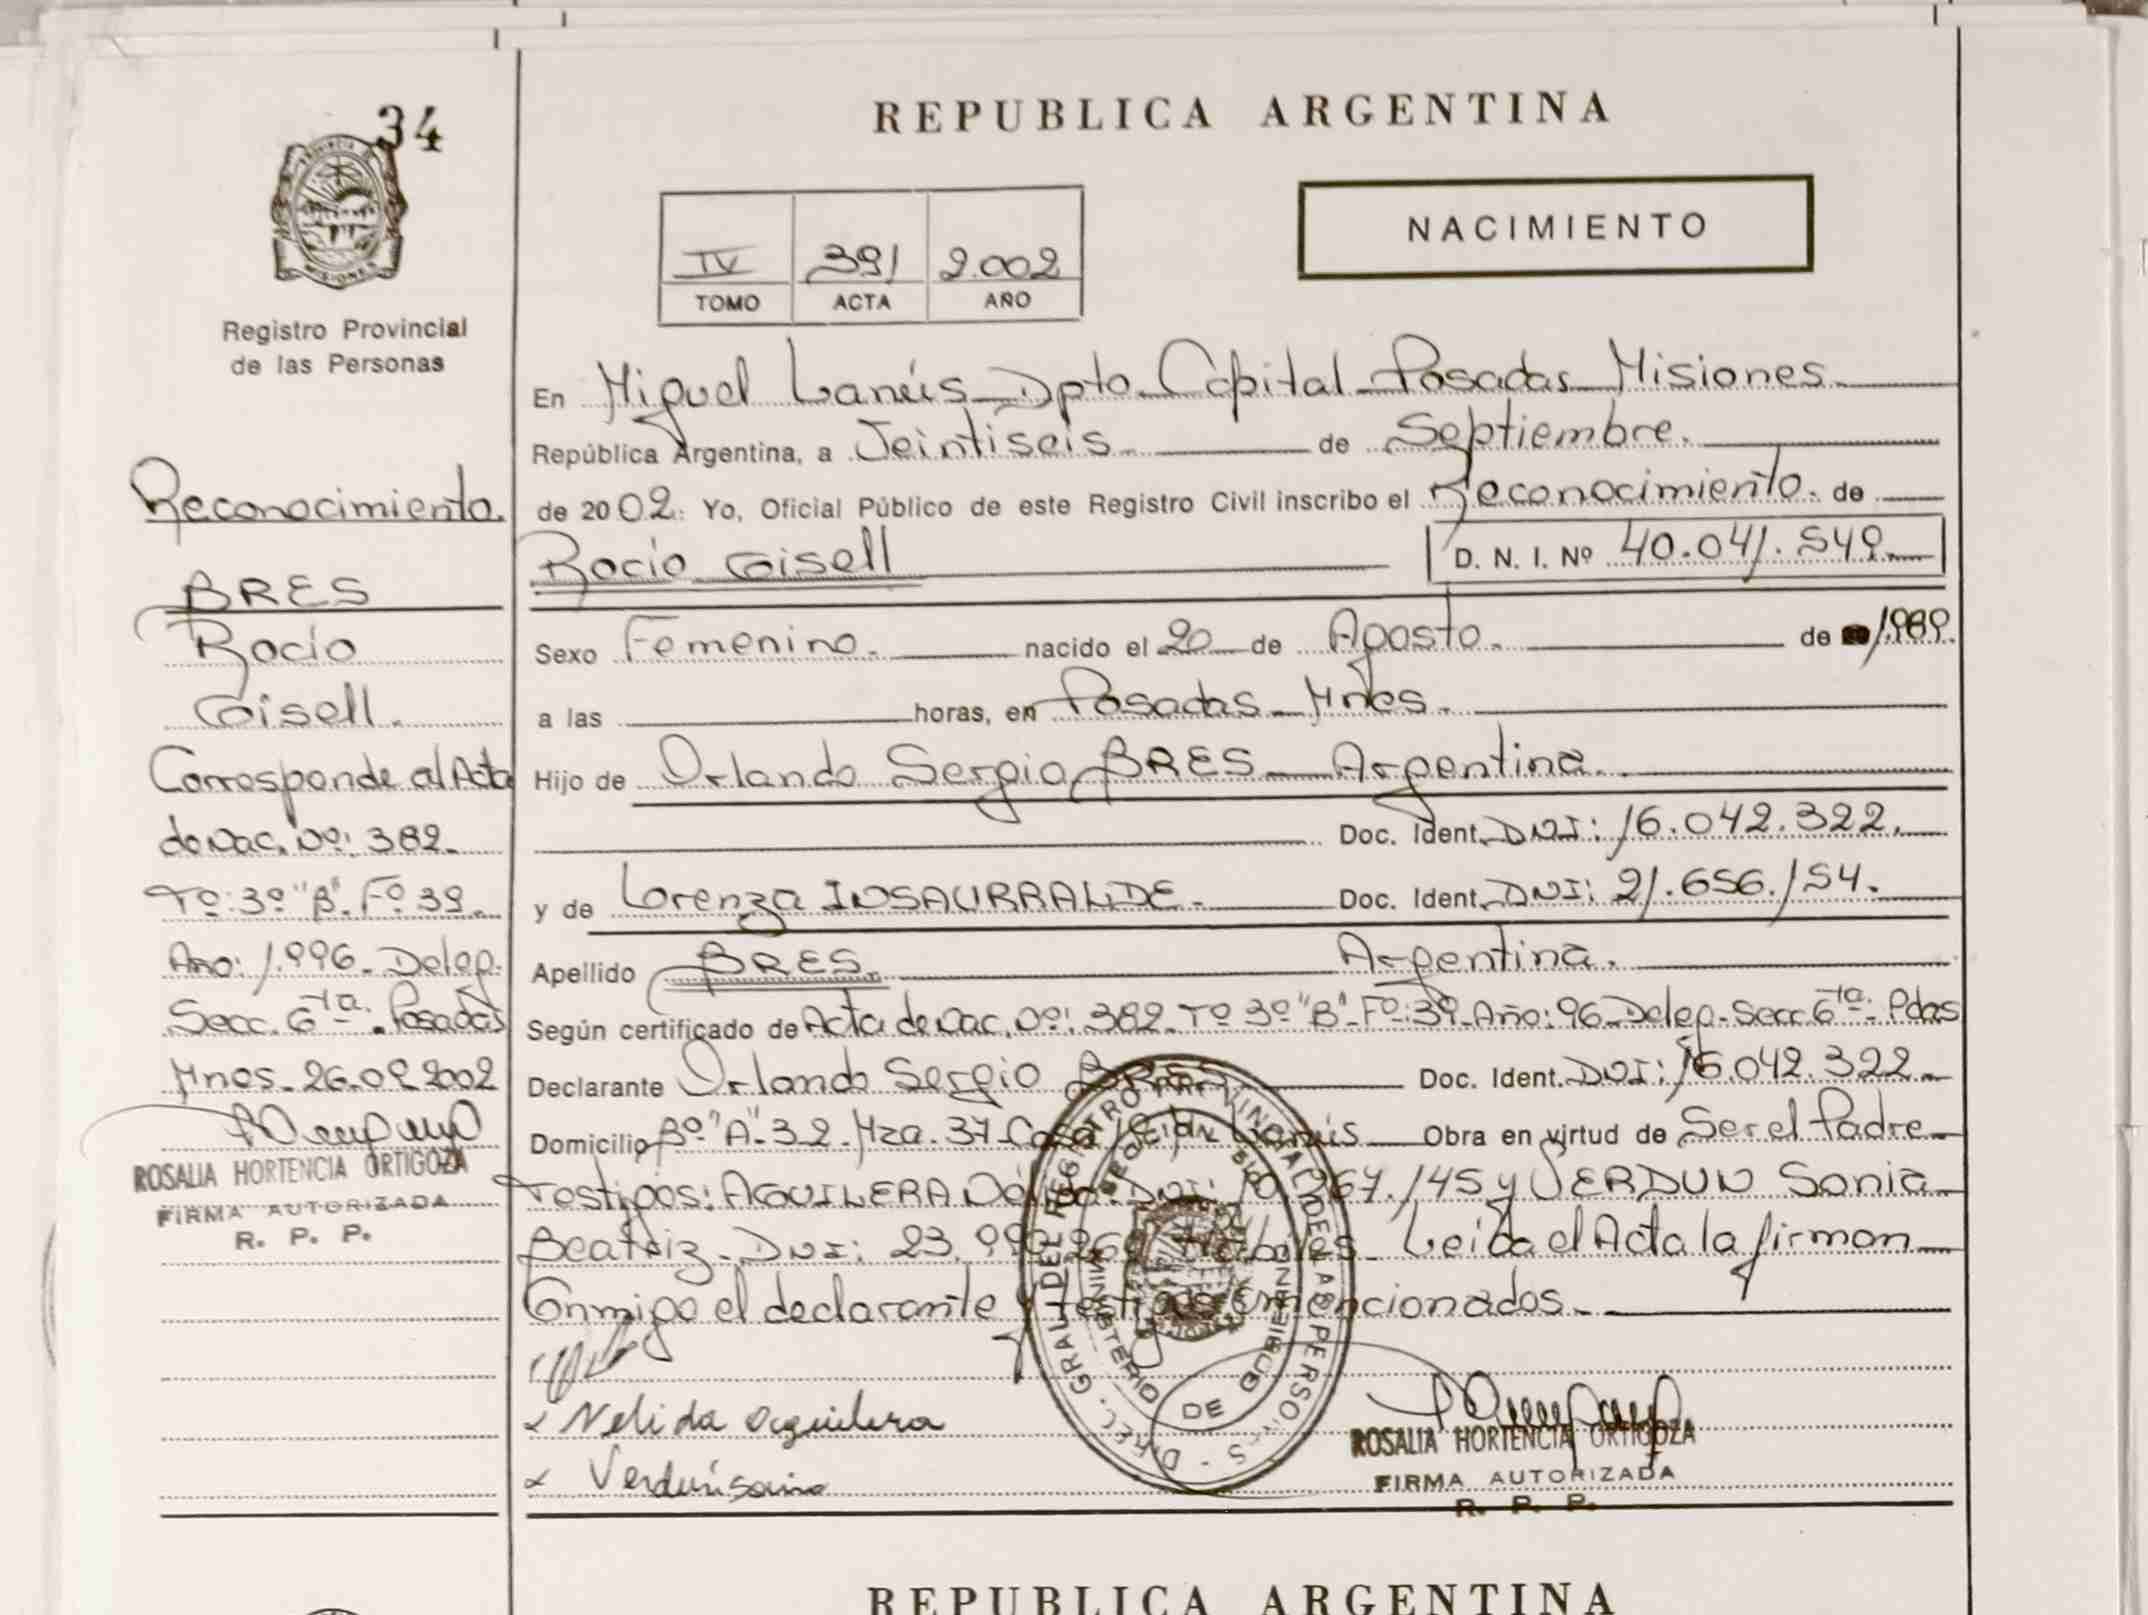 34
PROVINCIA DE
MISIONES
Registro Provincial
de las Personas
Reconocimiento.
BRES
Rocío
Gisell.
Corresponde al Acta
de Nac. Nº: 382.
Tº: 3º "B". Fº 39.
Año: 1.996. Deleg.
Secc. 6ta. Posadas
Mnes. 26.09.2002
ROSALIA HORTENCIA ORTIGOZA
FIRMA AUTORIZADA
R. P. P.
REPUBLICA ARGENTINA
NACIMIENTO
IV 391 2.002
TOMO ACTA AÑO
En Miguel Lanús Dpto. Capital Posadas Misiones.
República Argentina, a Veintiseis de Septiembre.
de 2002. Yo, Oficial Público de este Registro Civil inscribo el Reconocimiento. de
Rocío Gisell D. N. I. Nº 40.041.549.
Sexo Femenino. nacido el 20 de Agosto. de 1.989.
a las horas, en Posadas Mnes.
Hijo de Orlando Sergio BRES Argentina.
Doc. Ident. DNI: 16.042.322.
y de Lorenza INSAURRALDE. Doc. Ident. DNI: 21.656.154.
Apellido BRES. Argentina.
Según certificado de Acta de Nac. Nº: 382. Tº 3º "B". Fº: 39. Año: 96. Deleg. Secc 6ta. Pdas
Declarante Orlando Sergio BRES Doc. Ident. DNI: 16.042.322.
Domicilio Bº "A" 3.2. Mza. 37 Casa Lanús Obra en virtud de Ser el Padre
Testigos: AGUILERA DNI: 267.145 y VERDUN Sonia
Beatriz. DNI: 23. Hábiles. Leída el Acta la firman
Conmigo el declarante y testigos mencionados.
Nelida Aguilera
Verdún Sonia
DIREC. GRAL. DEL REGISTRO PROVINCIAL DE LAS PERSONAS
MINISTERIO DE GOBIERNO
ROSALIA HORTENCIA ORTIGOZA
FIRMA AUTORIZADA
R. P. P.
REPUBLICA ARGENTINA